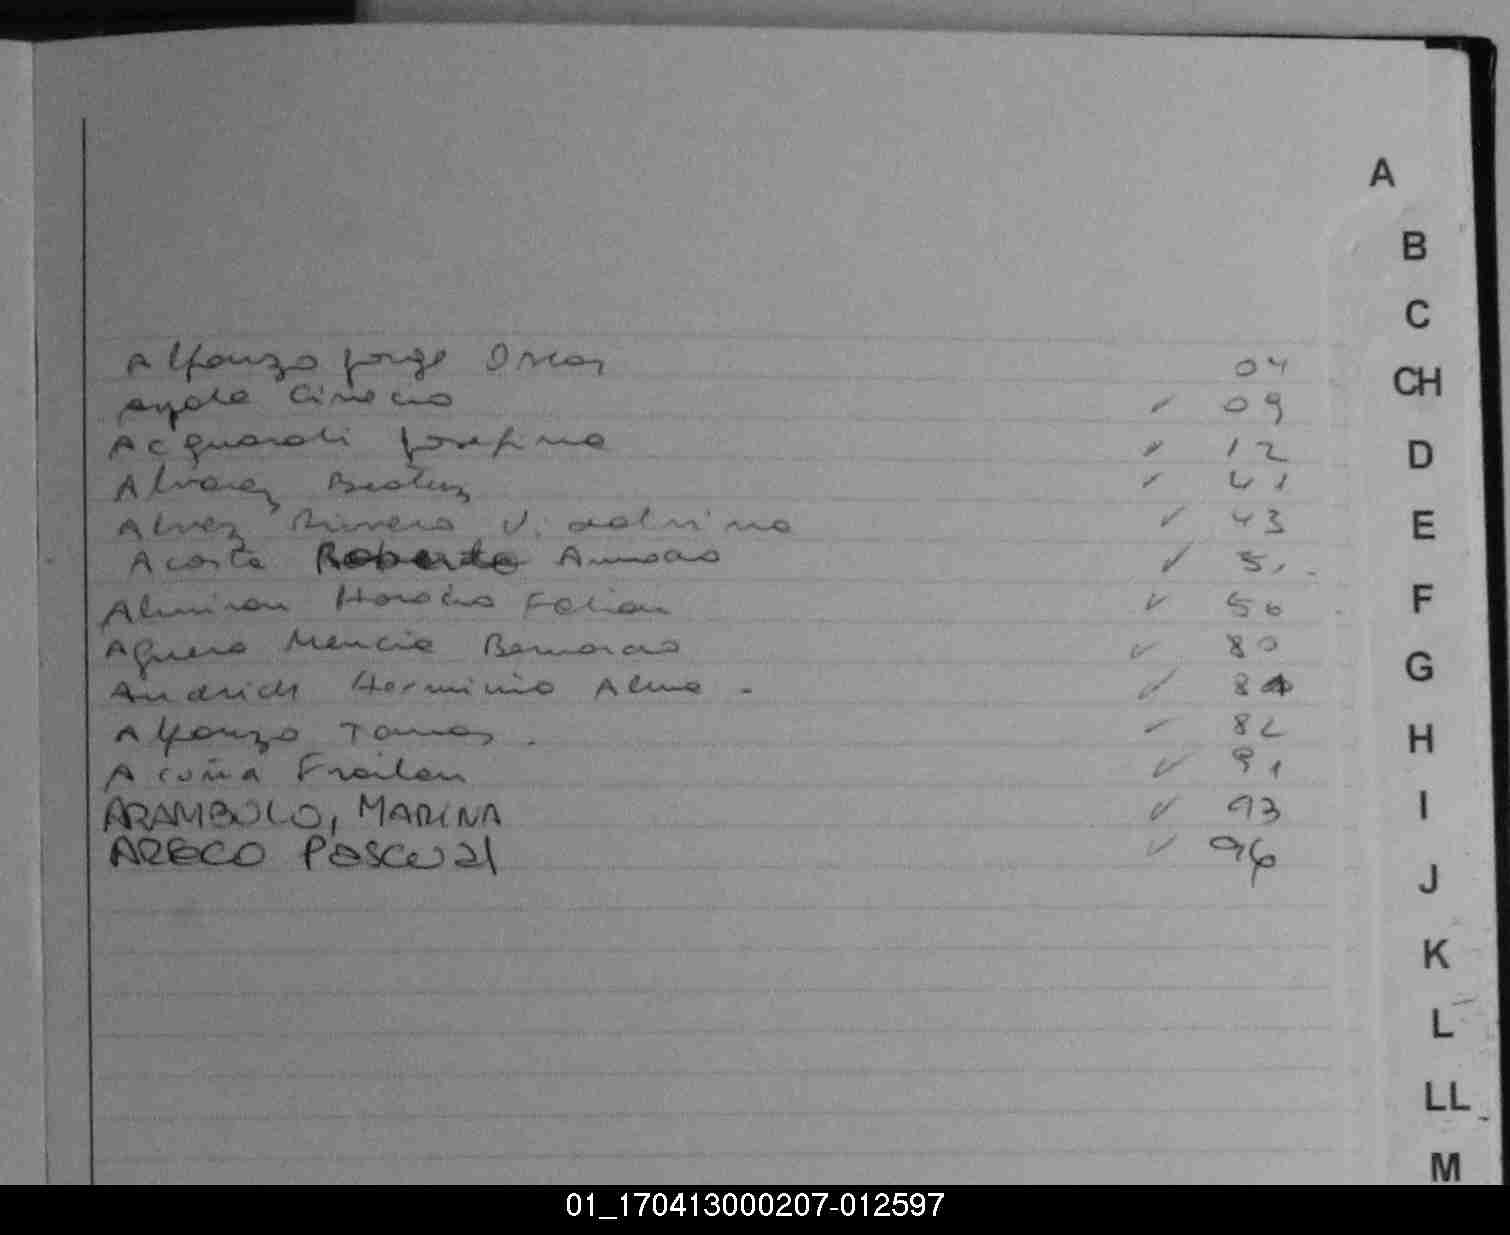 A
B
C
Alfonzo Jorge Oscar 04
CH
Ayala Cinecio ✓ 09
Acquaroli Josefina ✓ 12
D
Alvarez Beatriz ✓ 41
Alvez V. adelina ✓ 43
E
Acosta Roberto Amado ✓ 51
Almiron Horacio Fabian ✓ 56
F
Aguero Mencia Bernardo ✓ 80
G
Andrich Herminio Alma - ✓ 81
Alfonzo Tomas . ✓ 82
H
Acuña Froilan ✓ 91
I
ARAMBULO, MARINA ✓ 93
ARECO PASCUAL ✓ 96
J
K
L
LL
M
01_170413000207-012597